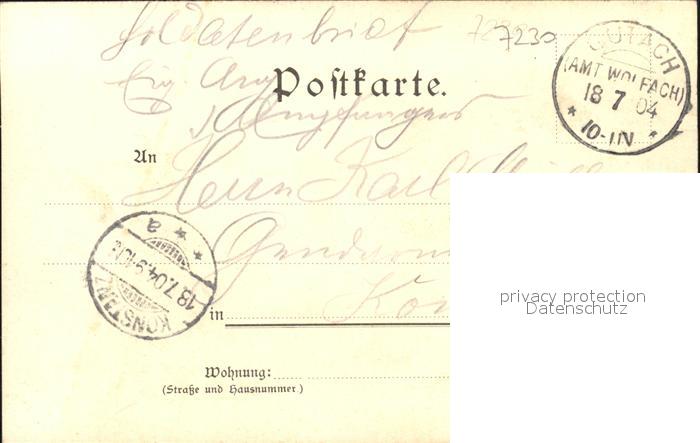 Soldatenbrief
7230
Eig. Ang.
d. Empfängers
Postkarte.
GUTACH
(AMT WOLFACH)
18 7 04
* 10-11N *
An
Herrn Karl
Gendarm
Kon
in
KONSTANZ
18.7.04.9-10N.
* a *
Wohnung:
(Straße und Hausnummer.)
privacy protection
Datenschutz